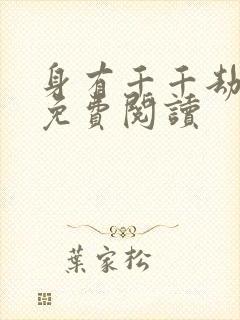 身有千千劫
免費閱讀
葉家松